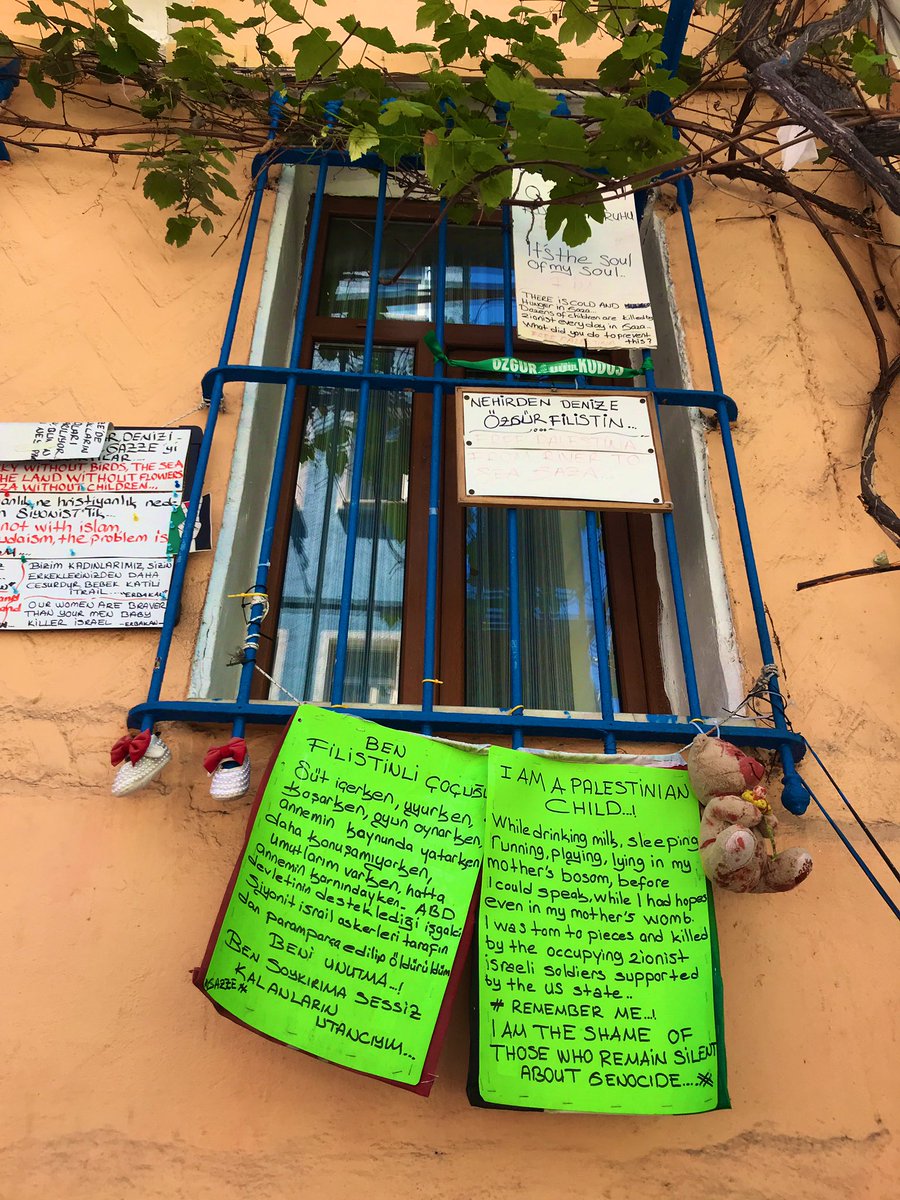 RUHU
It's the soul
Of my soul..
THERE IS COLD AND
Hunger in Gaza...
Dozens of children are killed by
zionist every day in Gaza...
What did you do to prevent
this?
ÖZGÜR KUDÜS
NEHİRDEN DENİZE
ÖZGÜR FİLİSTİN...
FREE PALESTINA
FROM RIVER TO
SEA GAZA...
DENİZİ
GAZZE'yi
WITHOUT BIRDS, THE SEA
THE LAND WITHOUT FLOWERS
WITHOUT CHILDREN...
ne hristiyanlık
SİYONİST'TİK...
not with islam,
the problem is
BİRİM KADINLARIMIZ, SİZİN
ERKEKLERİNİZDEN DAHA
CESURDUR BEBEK KATİLİ
İTRAİL... -ERBAKAN
OUR WOMEN ARE BRAVER
THAN YOUR MEN BABY
KILLER ISRAEL -ERBAKAN
BEN
FİLİSTİNLİ ÇOÇUĞU
Süt içerken, uyurken,
Koşarken, oyun oynarken,
annemin koynunda yatarken
daha konuşamıyorken,
umutlarım varken, hatta
annemin karnındayken.. ABD
devletinin desteklediği işgalci
Siyonit israil askerleri tarafın
dan paramparça edilip öldürüldüm
BENİ UNUTMA...!
BEN SOYKIRIMA SESSİZ
KALANLARIN
UTANCIYIM...
I AM A PALESTINIAN
CHILD...!
While drinking milk, sleeping
running, playing, lying in my
mother's bosom, before
I could speak, while I had hopes
even in my mother's womb.
I was torn to pieces and killed
by the occupying zionist
israeli soldiers supported
by the US state..
# REMEMBER ME...!
I AM THE SHAME OF
THOSE WHO REMAIN SILENT
ABOUT GENOCIDE....#